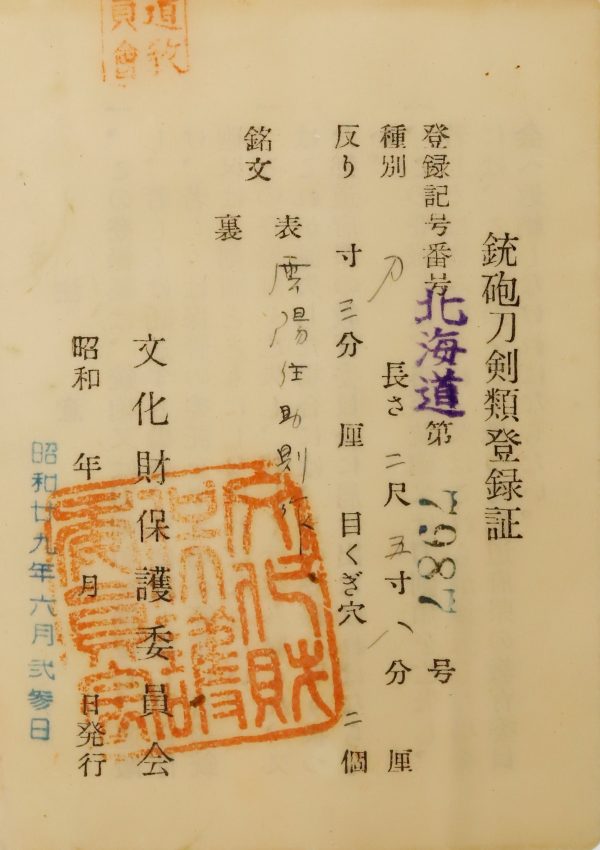 銃砲刀剣類登録証
登録記号番号 北海道 第 7987 号
種別 刀 長さ 二尺五寸八分 厘
反り 寸三分 厘 目くぎ穴 二個
銘文 表 雲陽住助則作
裏
文化財保護委員会
昭和 年 月 日発行
昭和廿九年六月弐参日
道教
員會
文化財
保護
委員会